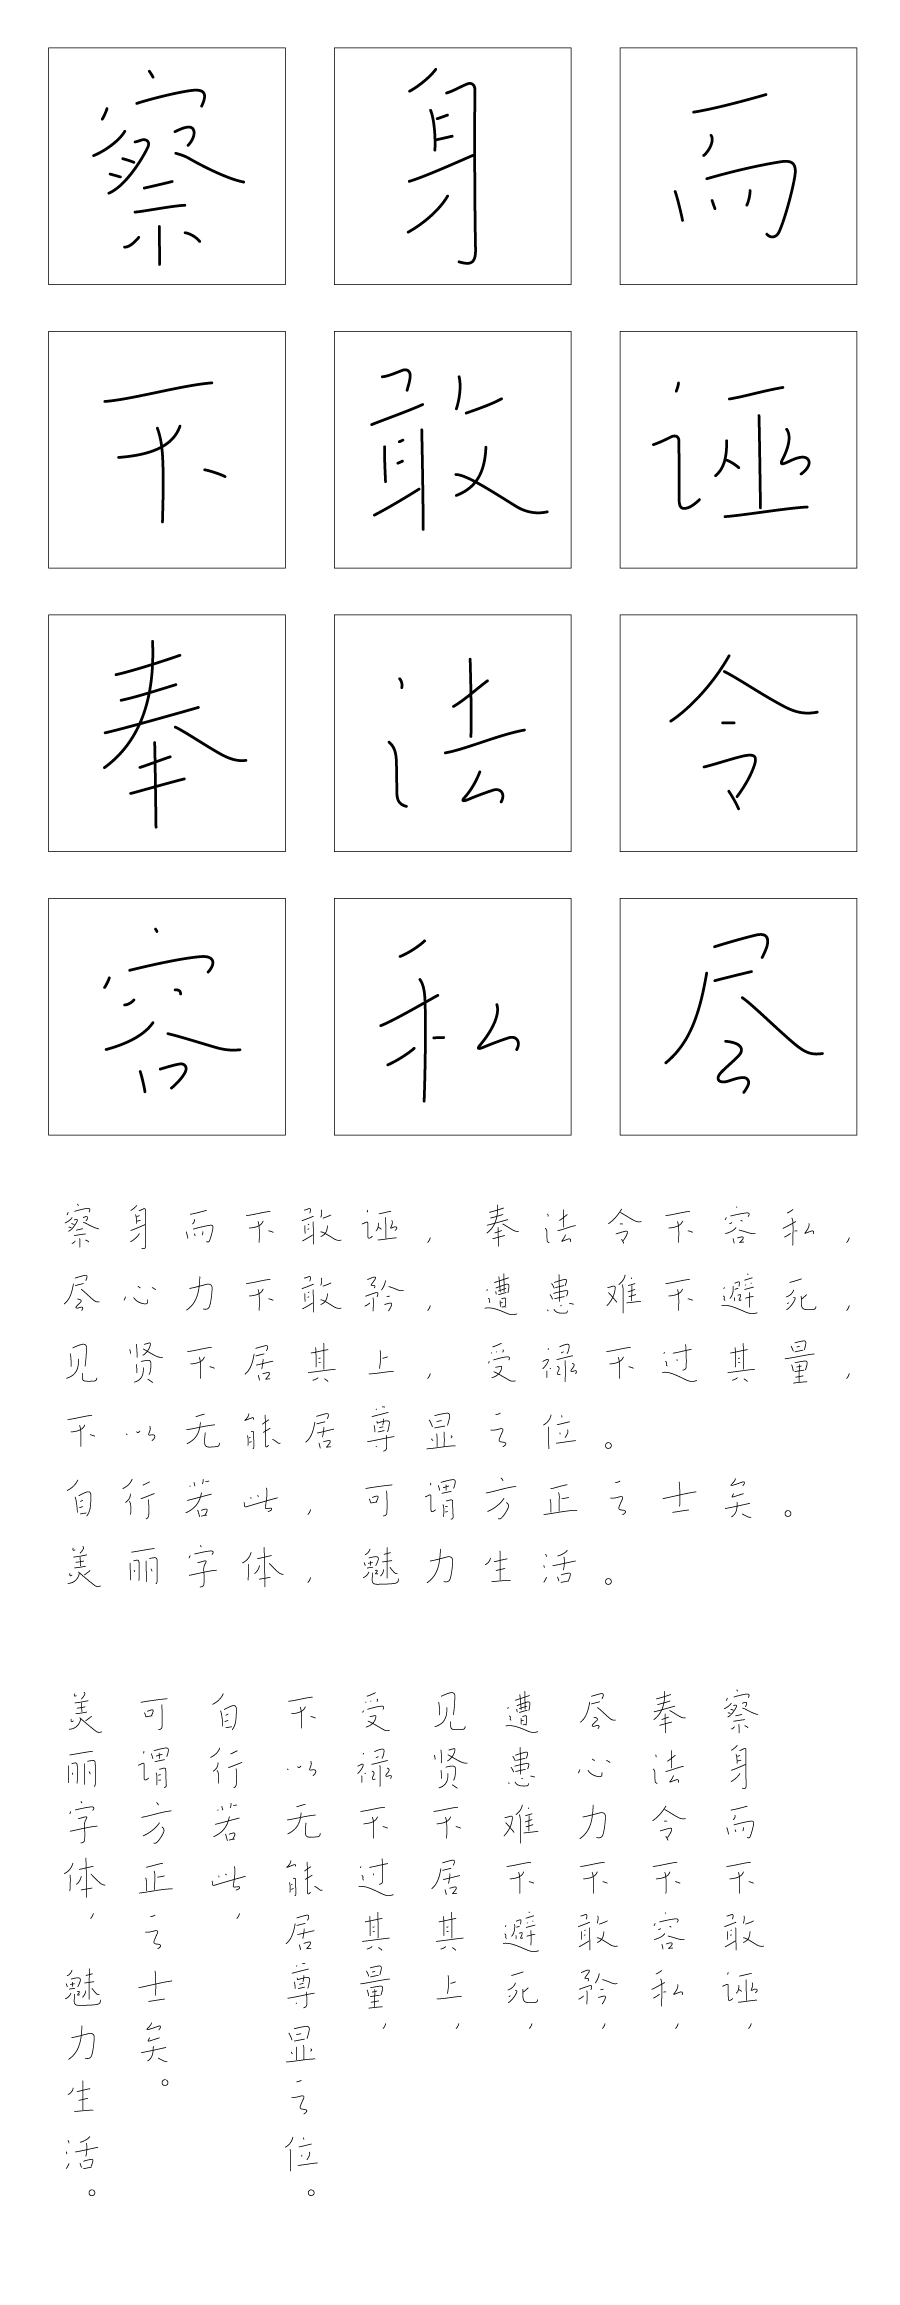 察身而
不敢诬
奉法令
容私尽
察身而不敢诬，奉法令不容私，
尽心力不敢矜，遭患难不避死，
见贤不居其上，受禄不过其量，
不以无能居尊显之位。
自行若此，可谓方正之士矣。
美丽字体，魅力生活。
察身而不敢诬，
奉法令不容私，
尽心力不敢矜，
遭患难不避死，
见贤不居其上，
受禄不过其量，
不以无能居尊显之位。
自行若此，
可谓方正之士矣。
美丽字体，魅力生活。